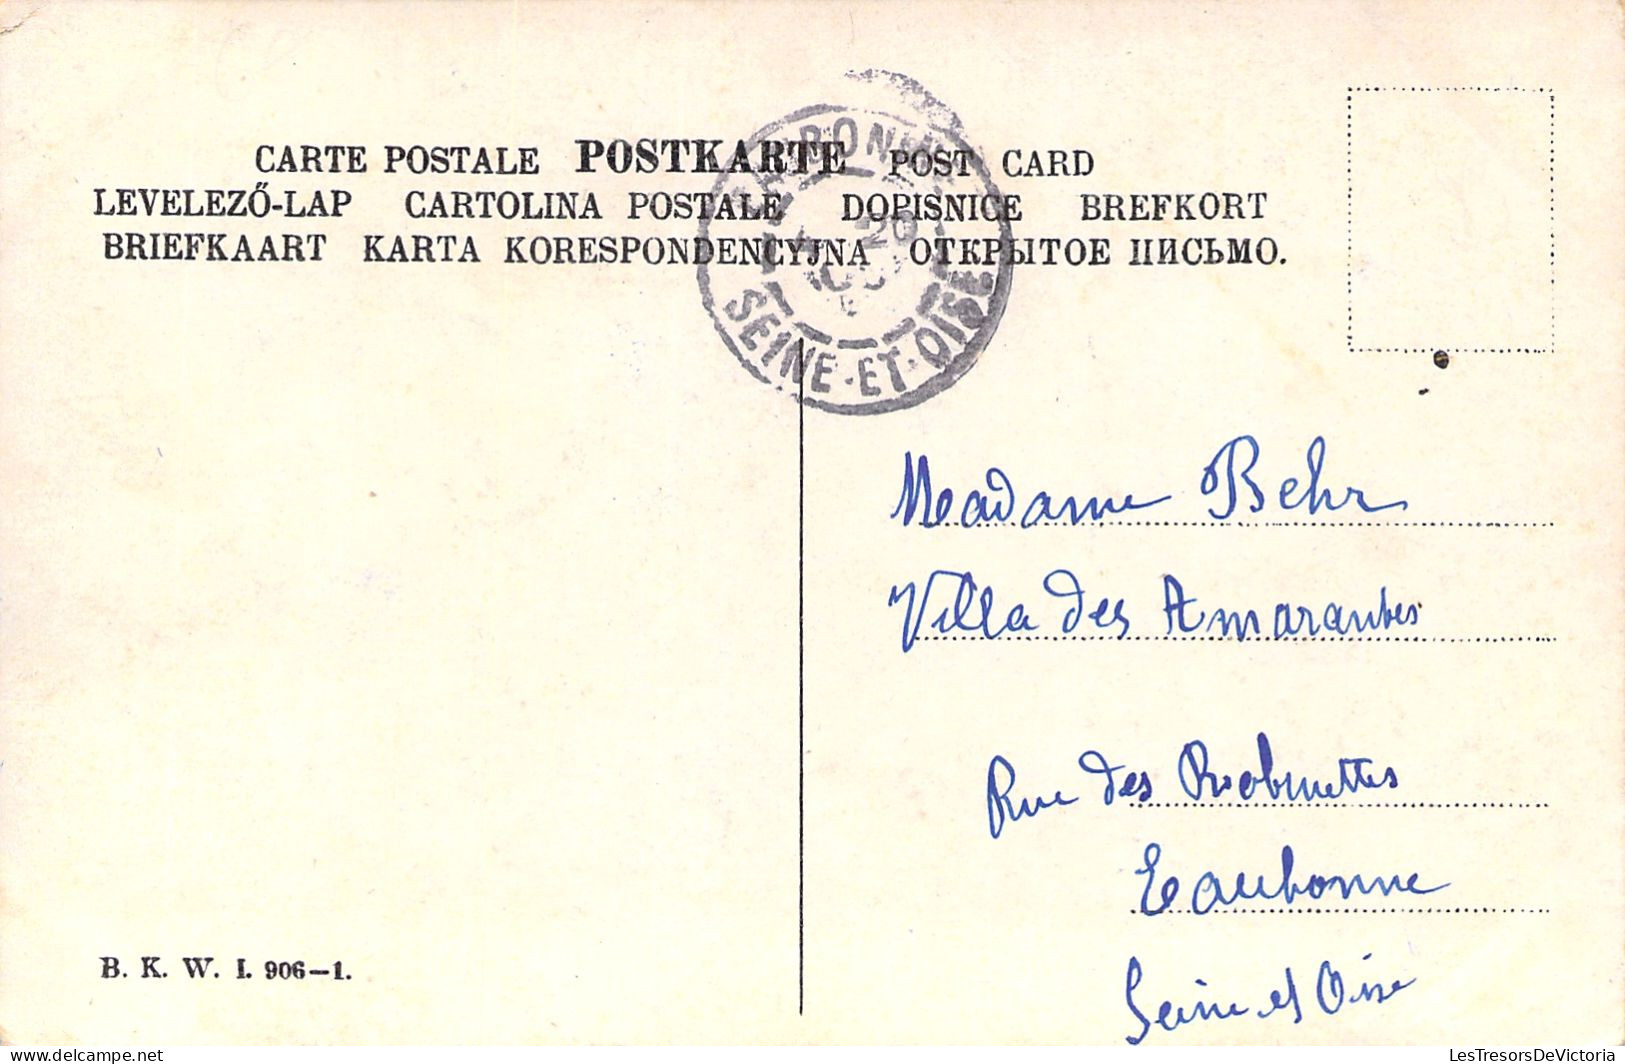 CARTE POSTALE POSTKARTE POST CARD
LEVELEZŐ-LAP CARTOLINA POSTALE DOPISNICE BREFKORT
BRIEFKAART KARTA KORESPONDENCYJNA ОТКРЫТОЕ ПИСЬМО.
SEINE-ET-OISE
Madame Behr
Villa des Amarantes
Rue des Robinettes
Eaubonne
Seine et Oise
B. K. W. I. 906-1.
LesTresorsDeVictoria